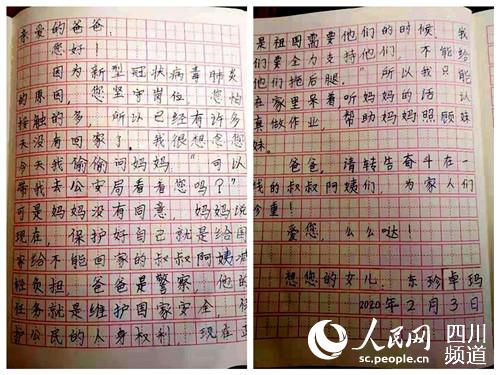 亲爱的爸爸:
您好!
因为新型冠状病毒肺炎
的原因,您坚守岗位,您怕
接触的多,所以已经有许多
天没有回家了。我很想念您
今天我偷偷问妈妈"可以
带我去公安局看看您吗?"
可是妈妈没有同意,妈妈说
现在,保护好自己就是给国
家给不能回家的叔叔阿姨减
轻负担,爸爸是警察,他的
任务就是维护国家安全,保
护公民的人身权利,现在正
是祖国需要他们的时候,我
们要全力支持他们,不能给
他们拖后腿。"所以我只能
在家里呆着听妈妈的话,认
真做作业,帮助妈妈照顾妹
妹。
爸爸,请转告奋斗在一
线的叔叔阿姨们,为家人们
珍重!
爱您,么么哒!
想您的女儿:东珍卓玛
2020年2月3日
人民网 四川频道
sc.people.cn